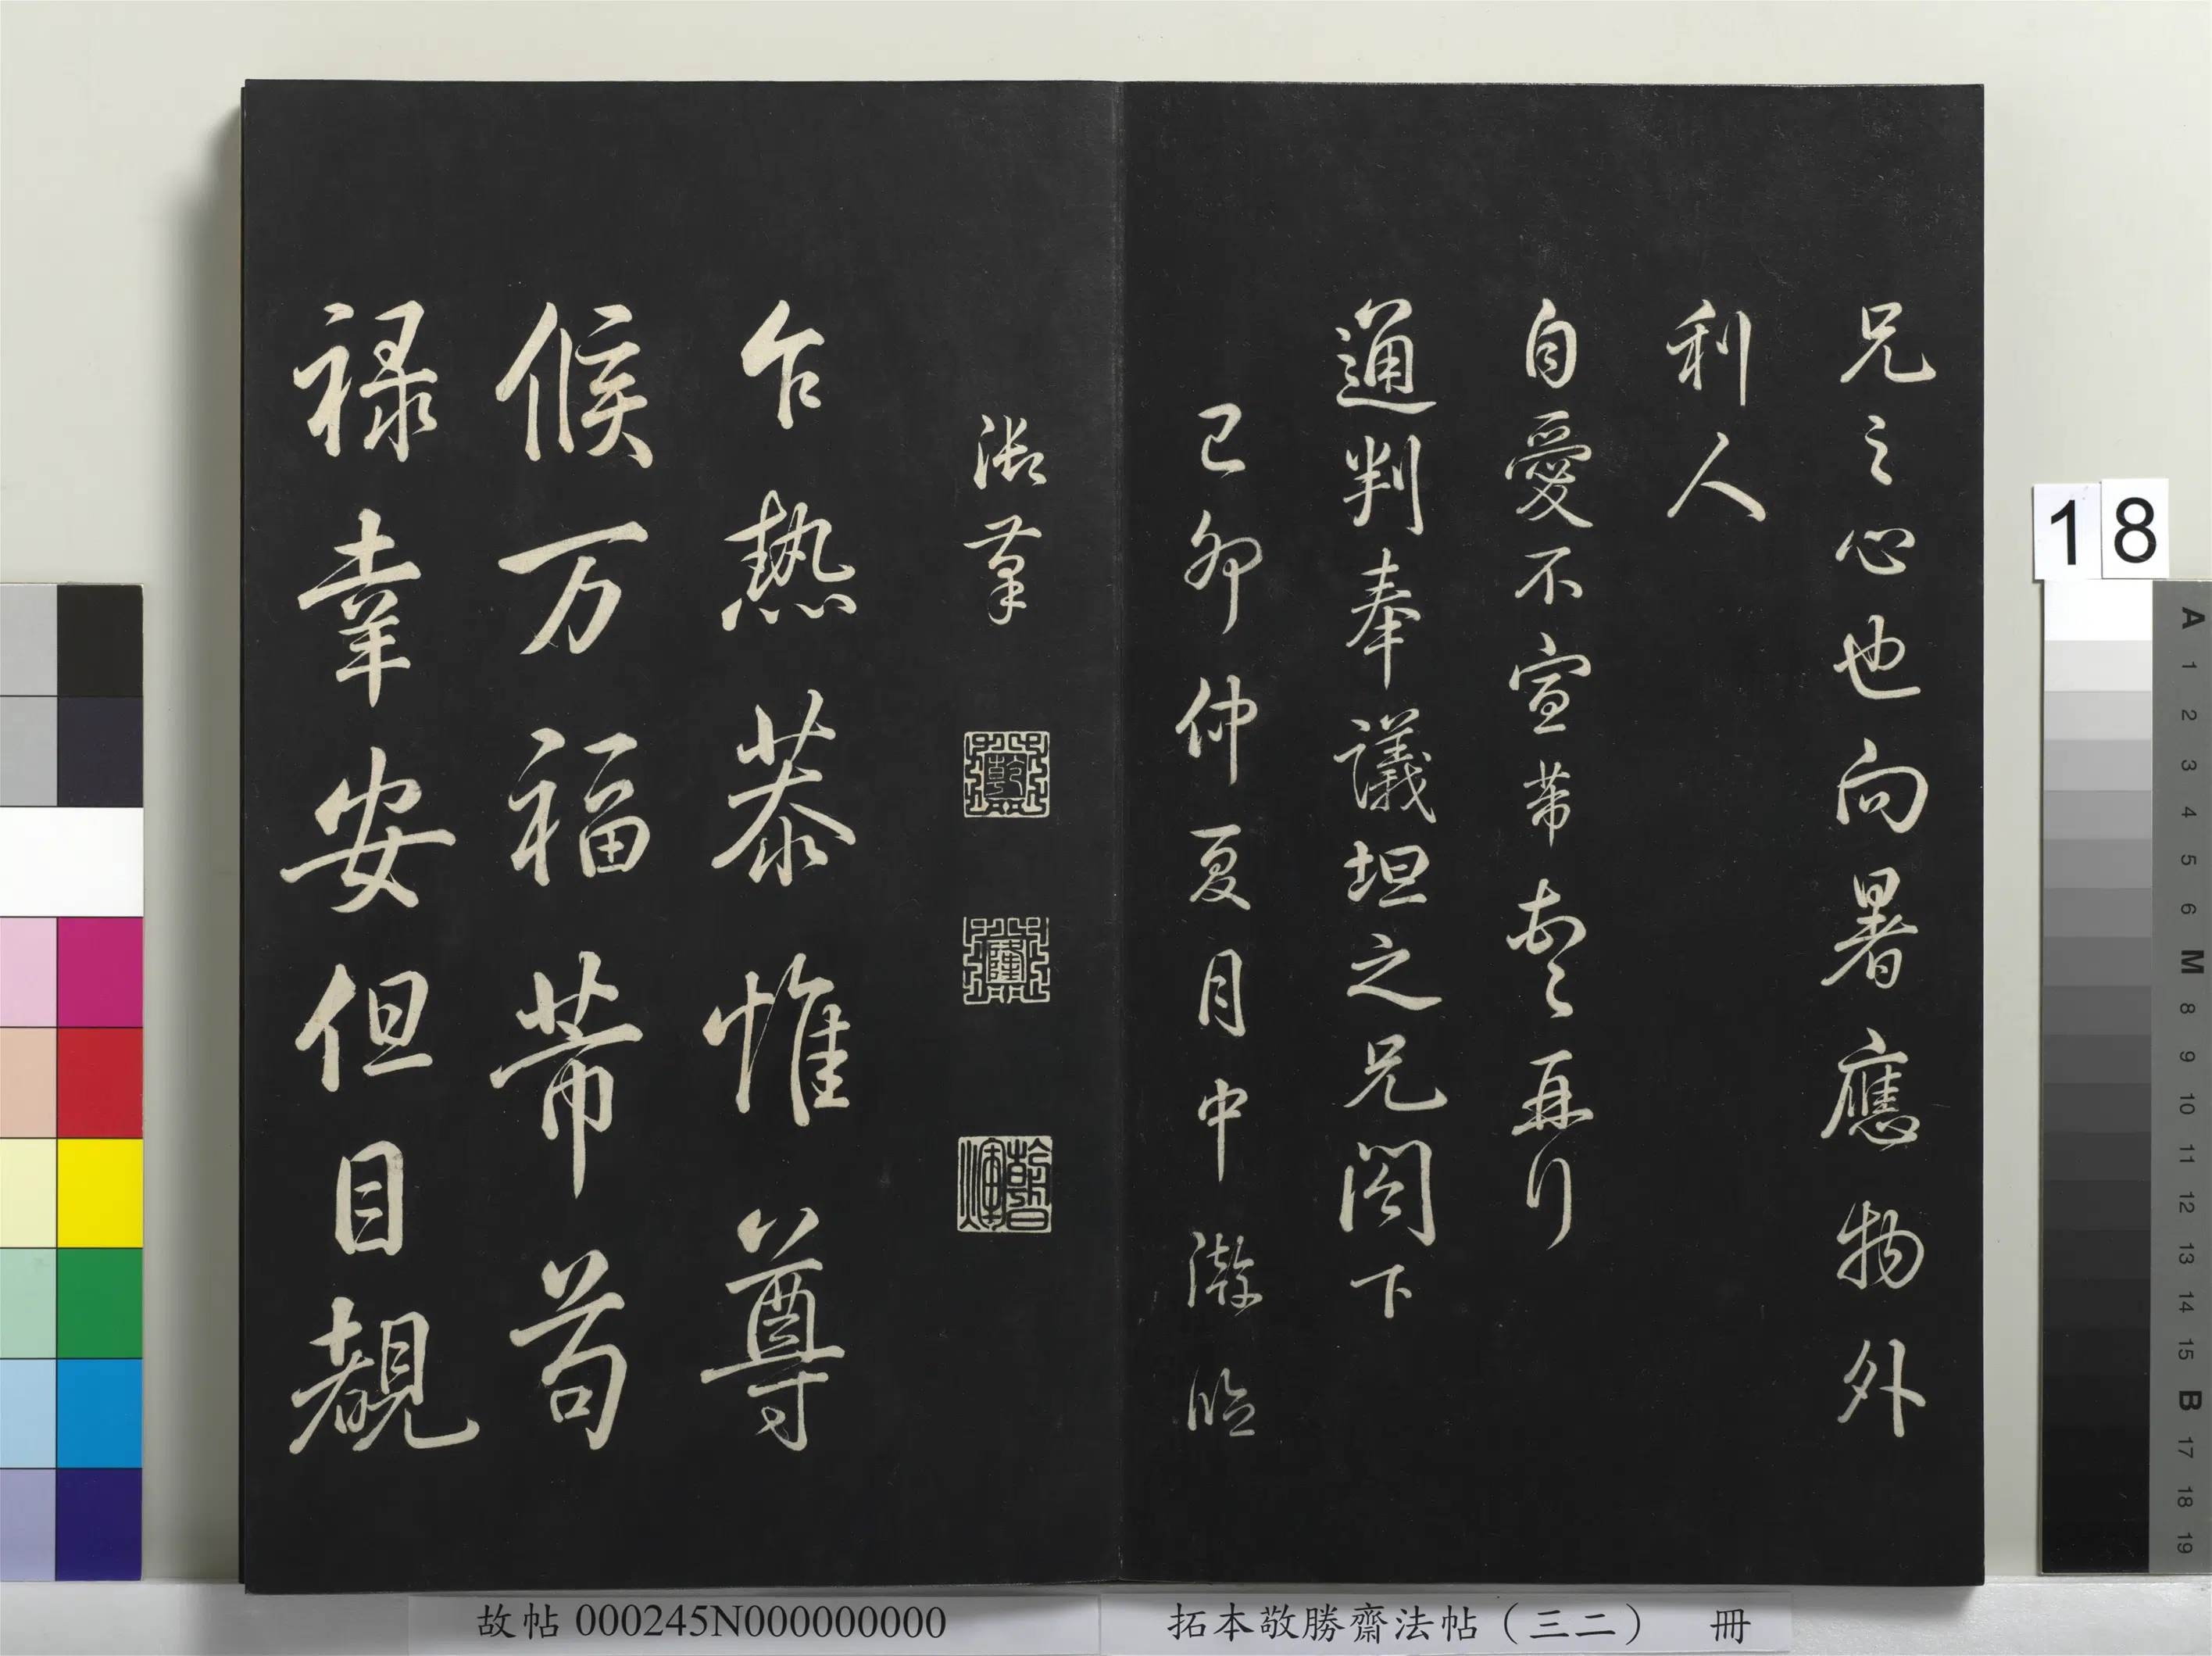 兄之心也向暑應物外
利人
自愛不宣芾頓首再行
通判奉議坦之兄閤下
己卯仲夏月中澣臨
御筆
乾隆
乍熱恭惟尊
候万福芾苟
祿幸安但目覩
18
A 1 2 3 4 5 6 M 8 9 10 11 12 13 14 15 B 17 18 19
故帖 000245N000000000
拓本敬勝齋法帖（三二） 冊